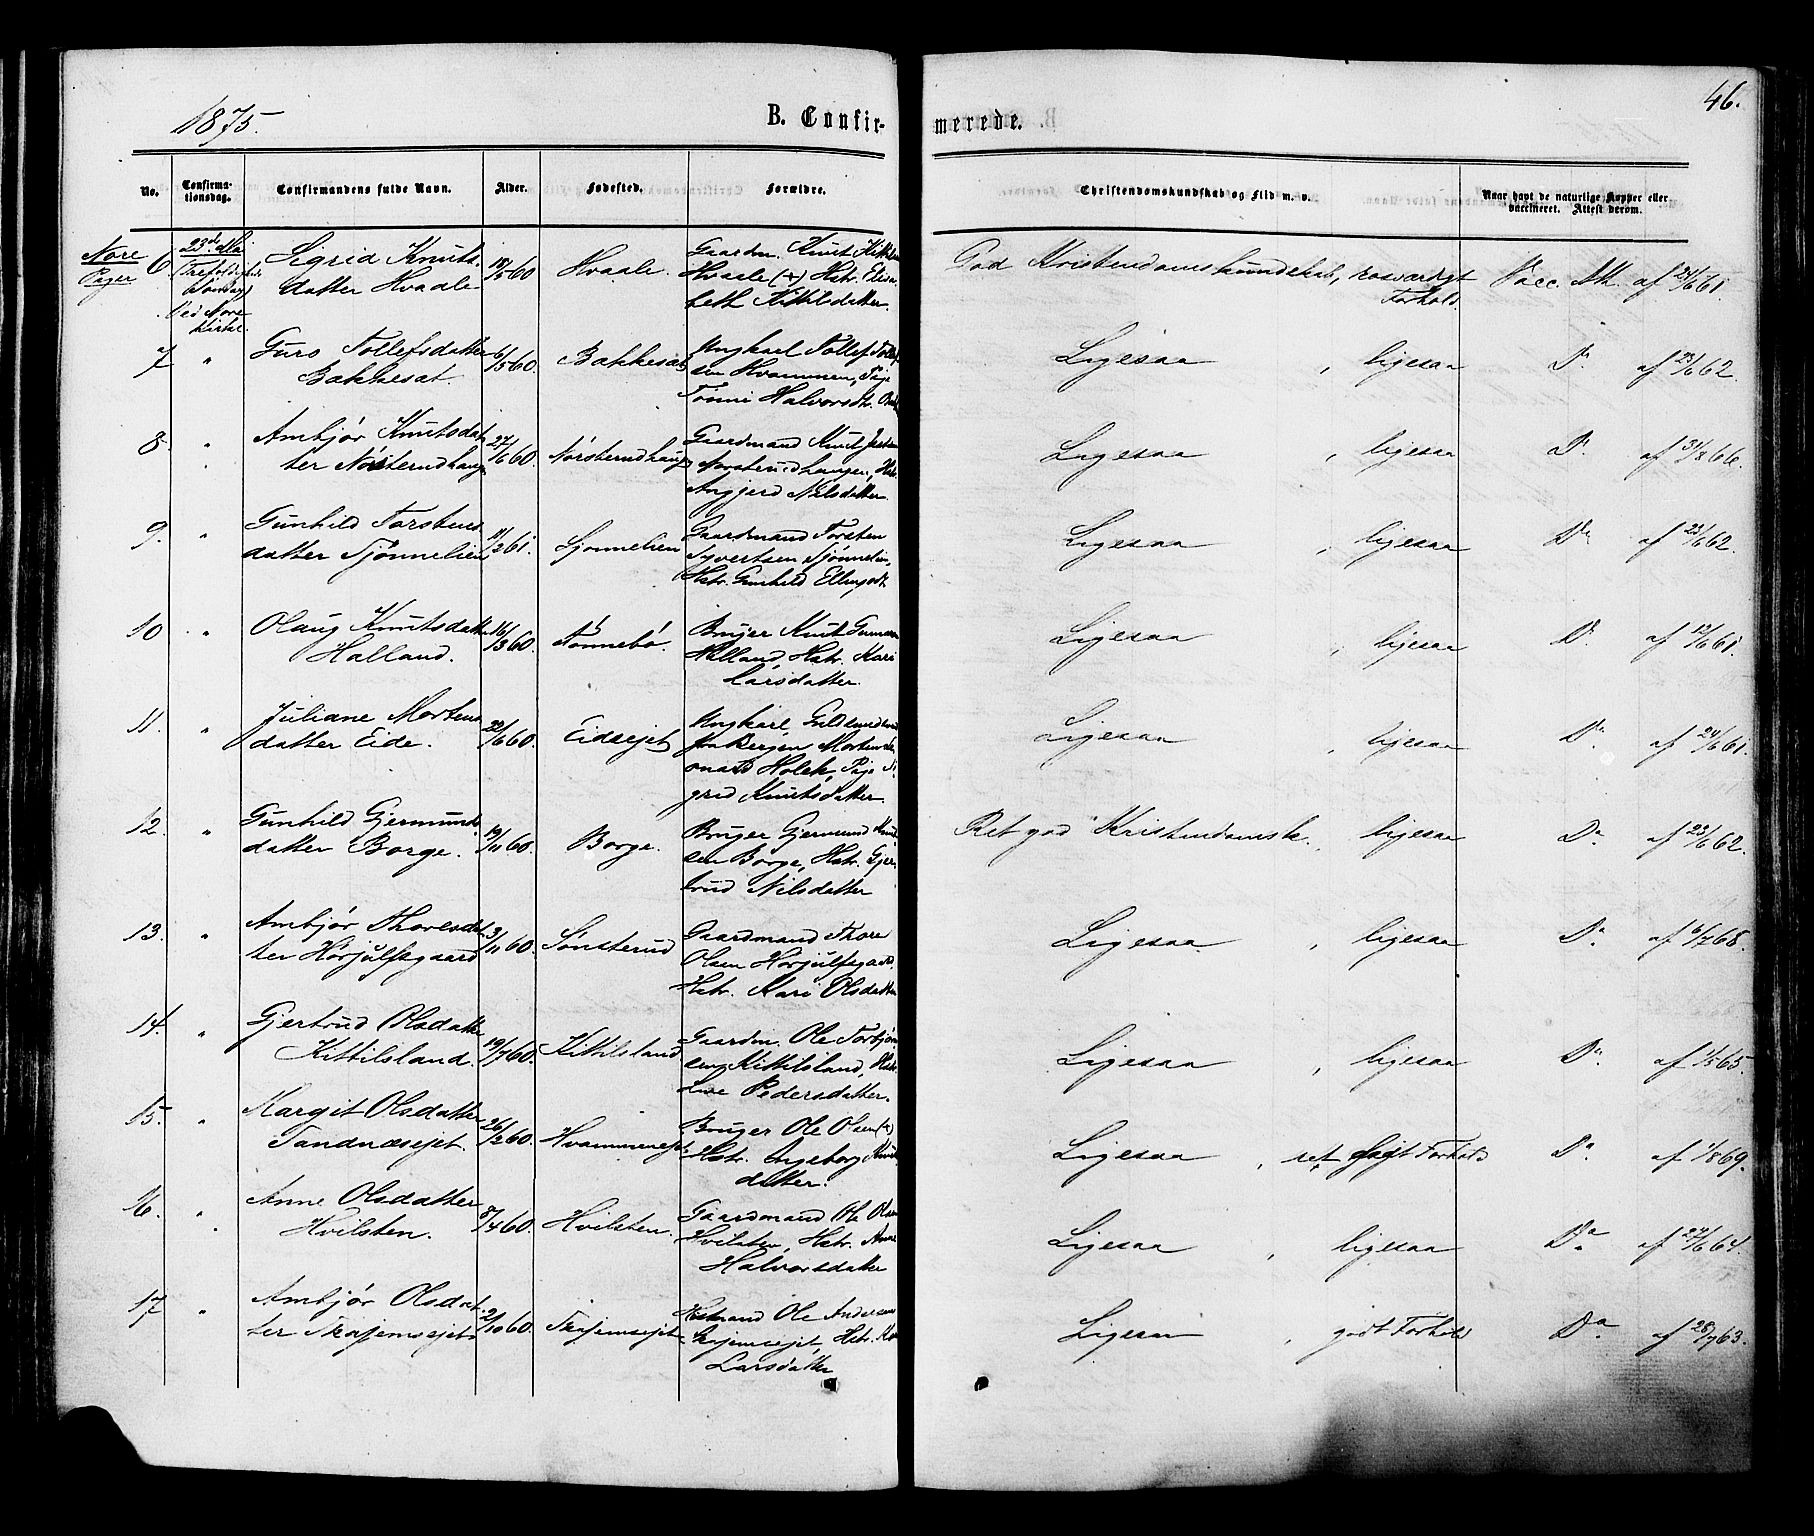 1875.
B. Confirmerede.
46.
No.
Confirmationsdag.
Confirmandens fulde Navn.
Alder.
Fødested.
Forældre.
Christendomskundskab og Flid m. v.
Naar havt de naturlige Kopper eller vaccineret. Attest derom.
Nore
Piger
6
23de Mai
Trefoldigheds
Søndag
Ved Nore
Kirke.
Sigrid Knuts-
datter Hvaale
18/5 60
Hvaale.
Gaardm. Knut Kittilsen
Hvaale (+) Hstr. Elisa-
beth Kittilsdatter.
God Kristendomskundskab, rosværdigt
Forhold
Vacc. Att. af 24/6 61.
7
"
Guro Tollefsdatter
Bakkesat.
6/5 60.
Bakkesat
Ungkarl Tollef Tollef-
sen Hvammen, Pige
Tonni Halvorsdtr.
Ligesaa, ligesaa
Do af 23/6 62.
8.
"
Ambjør Knutsdat-
ter Nørsterudhaug
27/6 60.
Nørsterudhaug
Gaardmand Knut
Nørsterudhaugen, Hstr.
Angjerd Nilsdatter
Ligesaa, ligesaa
Do af 31/8 66.
9.
"
Gunhild Torstens-
datter Sjønnelien
11/2 61.
Sjønnelien
Gaardmand Torsten
Syvertsen Sjønnelien,
Hstr. Gunhild Ellingsdt.
Ligesaa, ligesaa
Do af 23/6 62.
10
"
Olaug Knutsdatter
Halland.
16/3 60.
Tonnebø.
Bruger Knut Gunnars
Halland, Hstr. Kari
Larsdatter.
Ligesaa, ligesaa
Do af 12/6 61.
11.
"
Juliane Mortens-
datter Eide.
22/6 60.
Eidsejet
Ungkarl, Guldsmedsvend
fra Bergen Morten
Holck, Pige Si-
grid Knutsdatter.
Ligesaa, ligesaa
Do af 24/6 61.
12.
"
Gunhild Gjermunds-
datter Borge.
19/11 60.
Borge.
Bruger Gjermund Knud-
sen Borge, Hstr. Gjer-
trud Nilsdatter
Ret god Kristendomsk., ligesaa
Do af 23/6 62.
13.
"
Ambjør Thoresdat-
ter Hørjulfsgaard
3/11 60.
Sønsterud
Gaardmand Thore
Olsen Hørjulfsgaard
Hstr. Kari Olsdatter
Ligesaa, ligesaa
Do af 6/7 68.
14.
"
Gjertrud Olsdatter
Kittilsland.
19/7 60.
Kittilsland
Gaardm. Ole Torbjørn-
sen Kittilsland, Hstr.
Live Pedersdatter.
Ligesaa, ligesaa
Do af 1/5 65.
15.
"
Margit Olsdatter
Tandnæsejet.
26/2 60.
Hvammenejet
Bruger Ole Olsen (+)
Hstr. Ingeborg Knuts-
datter.
Ligesaa, ret godt Forhold
Do af 1/8 69.
16.
"
Anne Olsdatter
Hvilsten.
8/4 60.
Hvilsten.
Gaardmand Ole Olsen
Hvilsten, Hstr. Anne
Halvorsdatter
Ligesaa, ligesaa
Do af 24/6 64.
17
"
Ambjør Olsdat-
ter Trajemsejet
2/10 60.
Trajemsejet
Husmand Ole Andersen
Trajemsejet, Hstr.
Larsdatter
Ligesaa, godt Forhold
Do af 28/7 63.